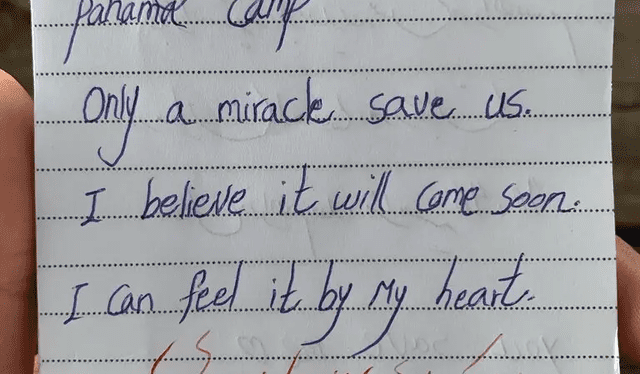 Panama Camp
Only a miracle save us.
I believe it will come soon.
I can feel it by my heart.